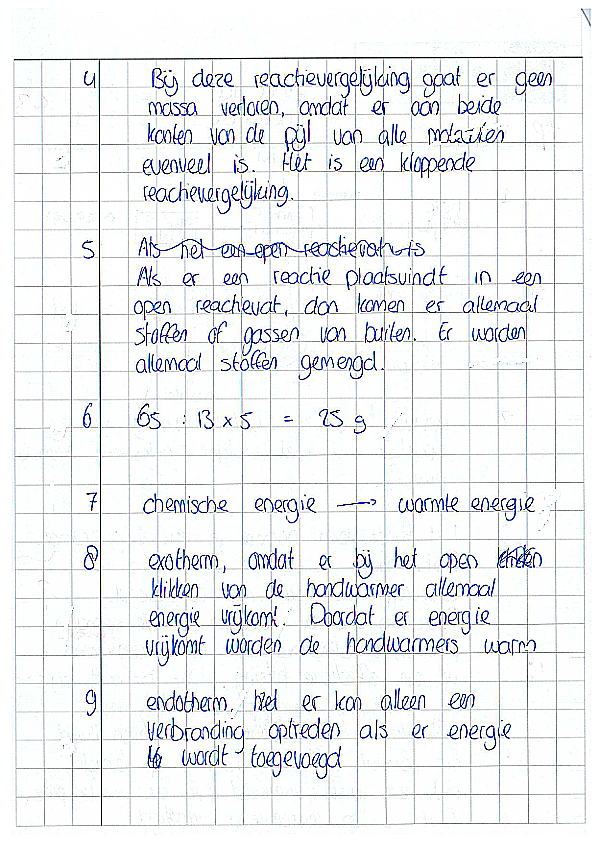 4 Bij deze reactievergelijking gaat er geen
massa verloren, omdat er aan beide
kanten van de pijl van alle
evenveel is. Het is een kloppende
reactievergelijking.
5 Als het een open reactievat is
Als er een reactie plaatsvindt in een
open reactievat, dan komen er allemaal
stoffen of gassen van buiten. Er worden
allemaal stoffen gemengd.
6 65 : 13 x 5 = 25 g
7 chemische energie → warmte energie
8 exotherm, omdat er bij het open
klikken van de handwarmer allemaal
energie vrijkomt. Doordat er energie
vrijkomt worden de handwarmers warm
9 endotherm. Het er kan alleen een
verbranding optreden als er energie
wordt toegevoegd